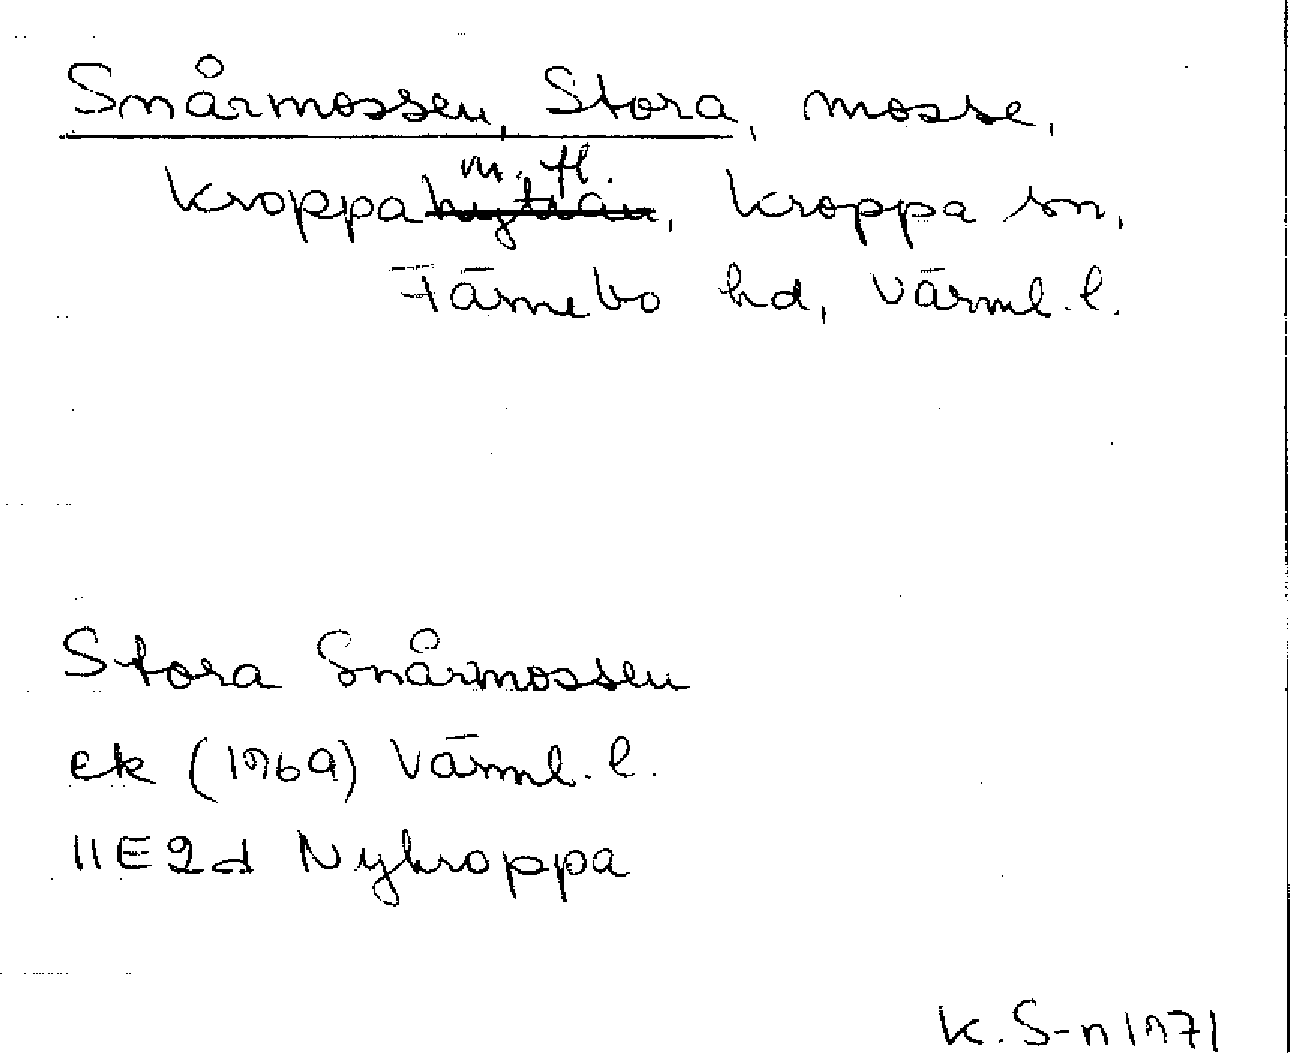 Snårmossen, Stora, mosse,
m. fl.
Kroppahyttan, Kroppa sn,
Färnebo hd, Värml. l.
Stora Snårmossen
ek (1969) Värml. l.
11E2d Nykroppa
K. S-n 1971